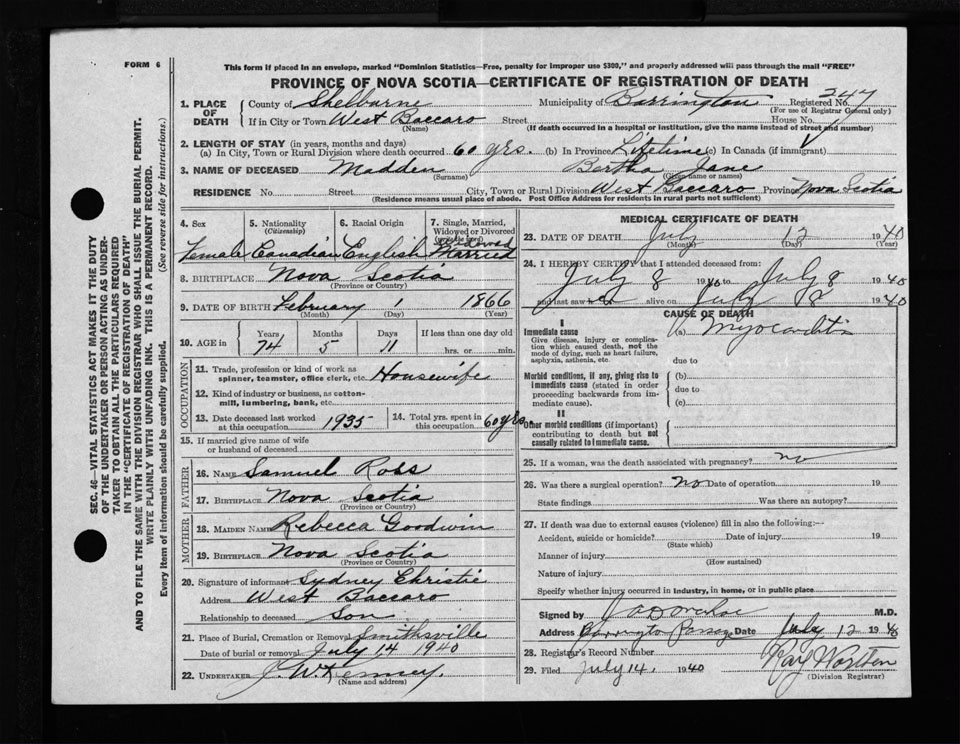 FORM 6
This form if placed in an envelope, marked "Dominion Statistics—Free, penalty for improper use $300," and properly addressed will pass through the mail "FREE"
PROVINCE OF NOVA SCOTIA—CERTIFICATE OF REGISTRATION OF DEATH
SEC. 46—VITAL STATISTICS ACT MAKES IT THE DUTY
OF THE UNDERTAKER OR PERSON ACTING AS UNDER-
TAKER TO OBTAIN ALL THE PARTICULARS REQUIRED
IN THE "CERTIFICATE OF REGISTRATION OF DEATH"
AND TO FILE THE SAME WITH THE DIVISION REGISTRAR WHO SHALL ISSUE THE BURIAL PERMIT.
WRITE PLAINLY WITH UNFADING INK. THIS IS A PERMANENT RECORD.
Every item of information should be carefully supplied. (See reverse side for instructions.)
1. PLACE OF DEATH County of Shelburne Municipality of Barrington Registered No. 247
(For use of Registrar General only)
If in City or Town West Baccaro Street House No.
(Name) (If death occurred in a hospital or institution, give the name instead of street and number)
2. LENGTH OF STAY (in years, months and days)
(a) In City, Town or Rural Division where death occurred 60 yrs. (b) In Province Lifetime (c) In Canada (if immigrant)
3. NAME OF DECEASED Madden Bertha Jane
(Surname) (Given name or names)
RESIDENCE No. Street City, Town or Rural Division West Baccaro Province Nova Scotia
(Residence means usual place of abode. Post Office Address for residents in rural parts not sufficient)
4. Sex 5. Nationality (Citizenship) 6. Racial Origin 7. Single, Married, Widowed or Divorced
Female Canadian English Widowed Married
8. BIRTHPLACE Nova Scotia
(Province or Country)
9. DATE OF BIRTH February 1 1866
(Month) (Day) (Year)
10. AGE in Years Months Days If less than one day old
74 5 11 hrs. or min.
OCCUPATION
11. Trade, profession or kind of work as spinner, teamster, office clerk, etc. Housewife
12. Kind of industry or business, as cotton-mill, lumbering, bank, etc.
13. Date deceased last worked at this occupation 1935 14. Total yrs. spent in this occupation 60 yrs.
15. If married give name of wife or husband of deceased
FATHER
16. NAME Samuel Ross
17. BIRTHPLACE Nova Scotia
(Province or Country)
MOTHER
18. MAIDEN NAME Rebecca Goodwin
19. BIRTHPLACE Nova Scotia
(Province or Country)
20. Signature of informant Sydney Christie
Address West Baccaro
Relationship to deceased Son
21. Place of Burial, Cremation or Removal Smithsville
Date of burial or removal July 14 1940
22. UNDERTAKER J. W. Kenney.
(Name and address)
MEDICAL CERTIFICATE OF DEATH
23. DATE OF DEATH July 12 1940
(Month) (Day) (Year)
24. I HEREBY CERTIFY that I attended deceased from:
July 8 1940 to July 8 1940
and last saw alive on July 1940
CAUSE OF DEATH
I
Immediate cause (a) Myocarditis
Give disease, injury or complica-
tion which caused death, not the
mode of dying, such as heart failure,
asphyxia, asthenia, etc. due to
Morbid conditions, if any, giving rise to (b)
immediate cause (stated in order due to
proceeding backwards from im-
mediate cause). (c)
II
Other morbid conditions (if important)
contributing to death but not
causally related to immediate cause.
25. If a woman, was the death associated with pregnancy? no
26. Was there a surgical operation? no Date of operation 19
State findings Was there an autopsy?
27. If death was due to external causes (violence) fill in also the following:—
Accident, suicide or homicide? Date of injury 19
(State which)
Manner of injury
(How sustained)
Nature of injury
Specify whether injury occurred in industry, in home, or in public place
Signed by M.D.
Address Barrington Passage Date July 12 1940
28. Registrar's Record Number
29. Filed July 14, 1940
(Division Registrar)